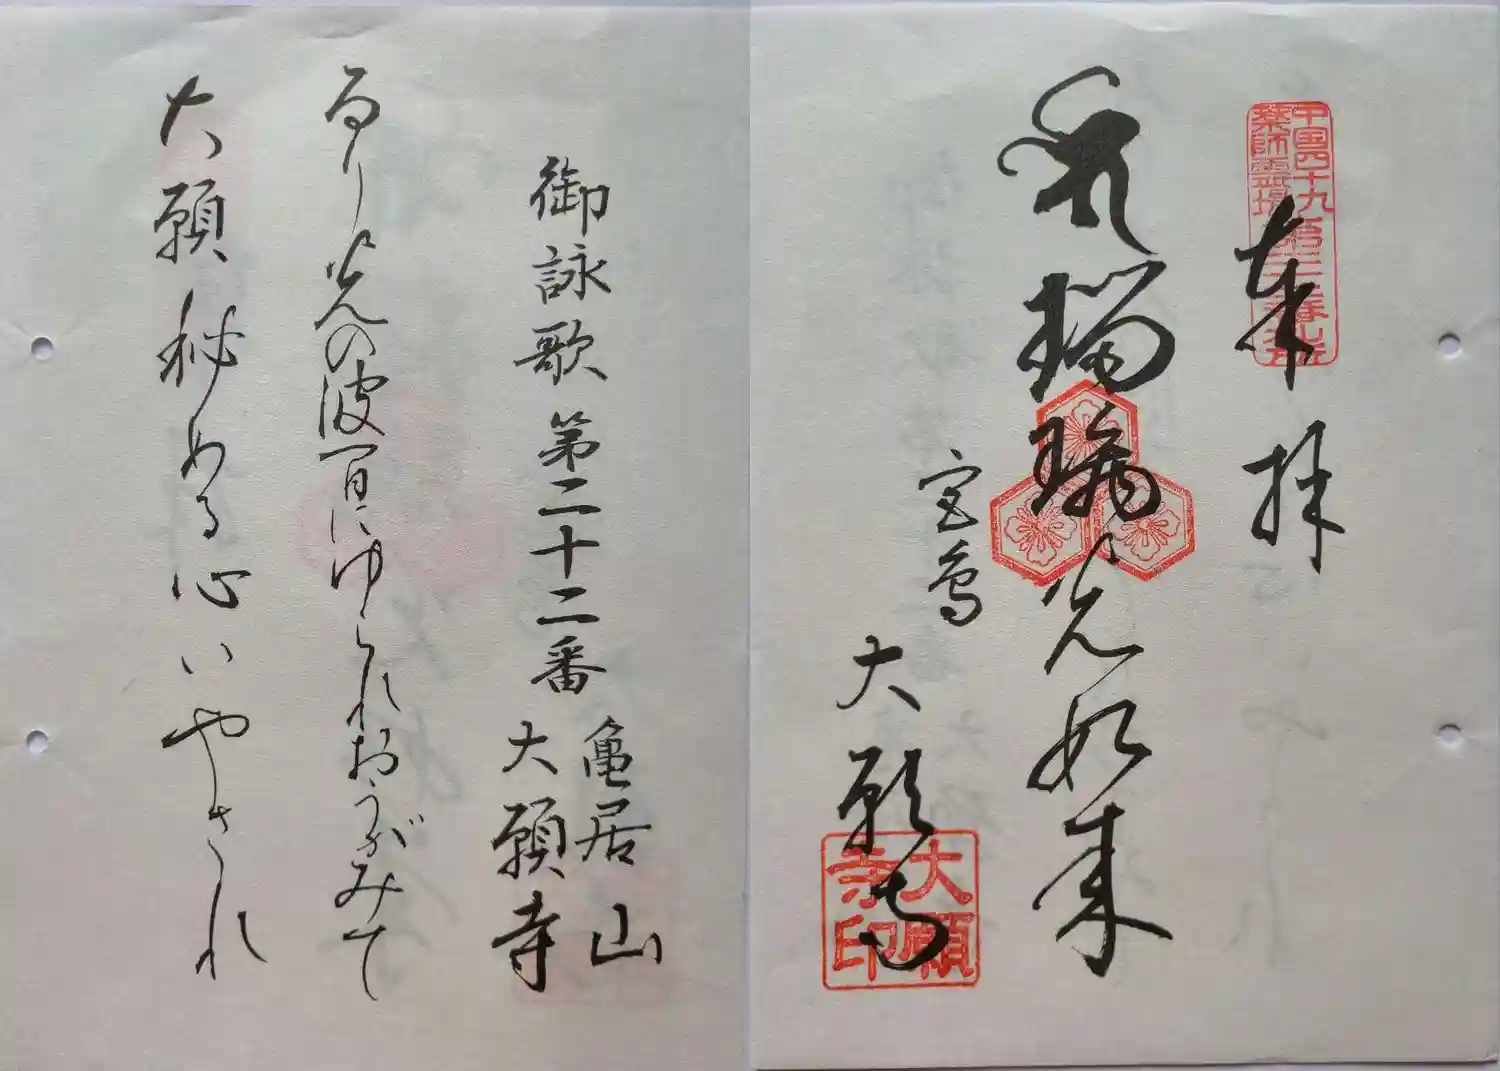 中国四十九
薬師霊場
第二十二番札所
奉拝
瑠璃光如来
宮島
大願寺
大願
寺印
御詠歌 第二十二番
亀居山
大願寺
るり光の波間にゆられおろがみて
大願秘める心いやされ